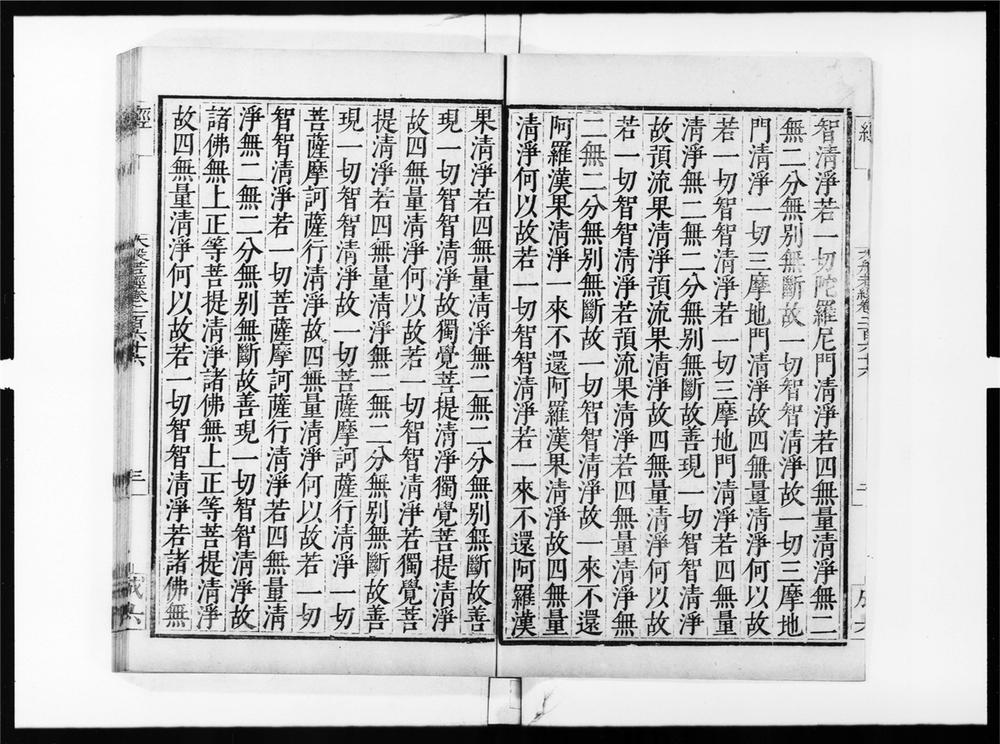 智清淨若一切陀羅尼門清淨若四無量清淨無二
無二分無別無斷故一切智智清淨故一切三摩地
門清淨一切三摩地門清淨故四無量清淨何以故
若一切智智清淨若一切三摩地門清淨若四無量
清淨無二無二分無別無斷故善現一切智智清淨
故預流果清淨預流果清淨故四無量清淨何以故
若一切智智清淨若預流果清淨若四無量清淨無
二無二分無別無斷故一切智智清淨故一來不還
阿羅漢果清淨一來不還阿羅漢果清淨故四無量
清淨何以故若一切智智清淨若一來不還阿羅漢
果清淨若四無量清淨無二無二分無別無斷故善
現一切智智清淨故獨覺菩提清淨獨覺菩提清淨
故四無量清淨何以故若一切智智清淨若獨覺菩
提清淨若四無量清淨無二無二分無別無斷故善
現一切智智清淨故一切菩薩摩訶薩行清淨一切
菩薩摩訶薩行清淨故四無量清淨何以故若一切
智智清淨若一切菩薩摩訶薩行清淨若四無量清
淨無二無二分無別無斷故善現一切智智清淨故
諸佛無上正等菩提清淨諸佛無上正等菩提清淨
故四無量清淨何以故若一切智智清淨若諸佛無
經 大般若經卷二百六十六 三